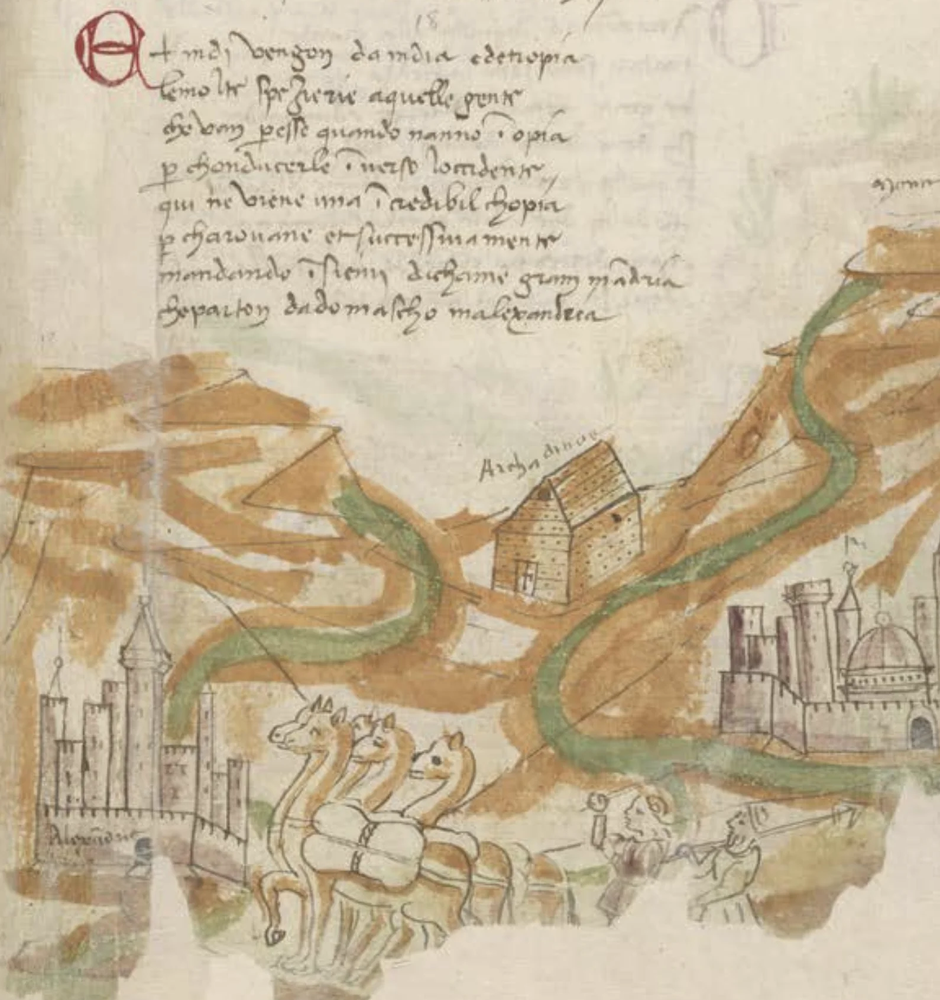 18
Et indi vengon da india edetiopia
lemolte spezierie aquelle gente
che van p esse quando nanno ī opia
p chonducerle ī verso loccidente
qui ne viene una ī credibil chopia
p charovane et successiva mente
mandando īsieme dichame gram mādria
cheparton dadomascho inalexandria
Archa dinoe
Alexādria